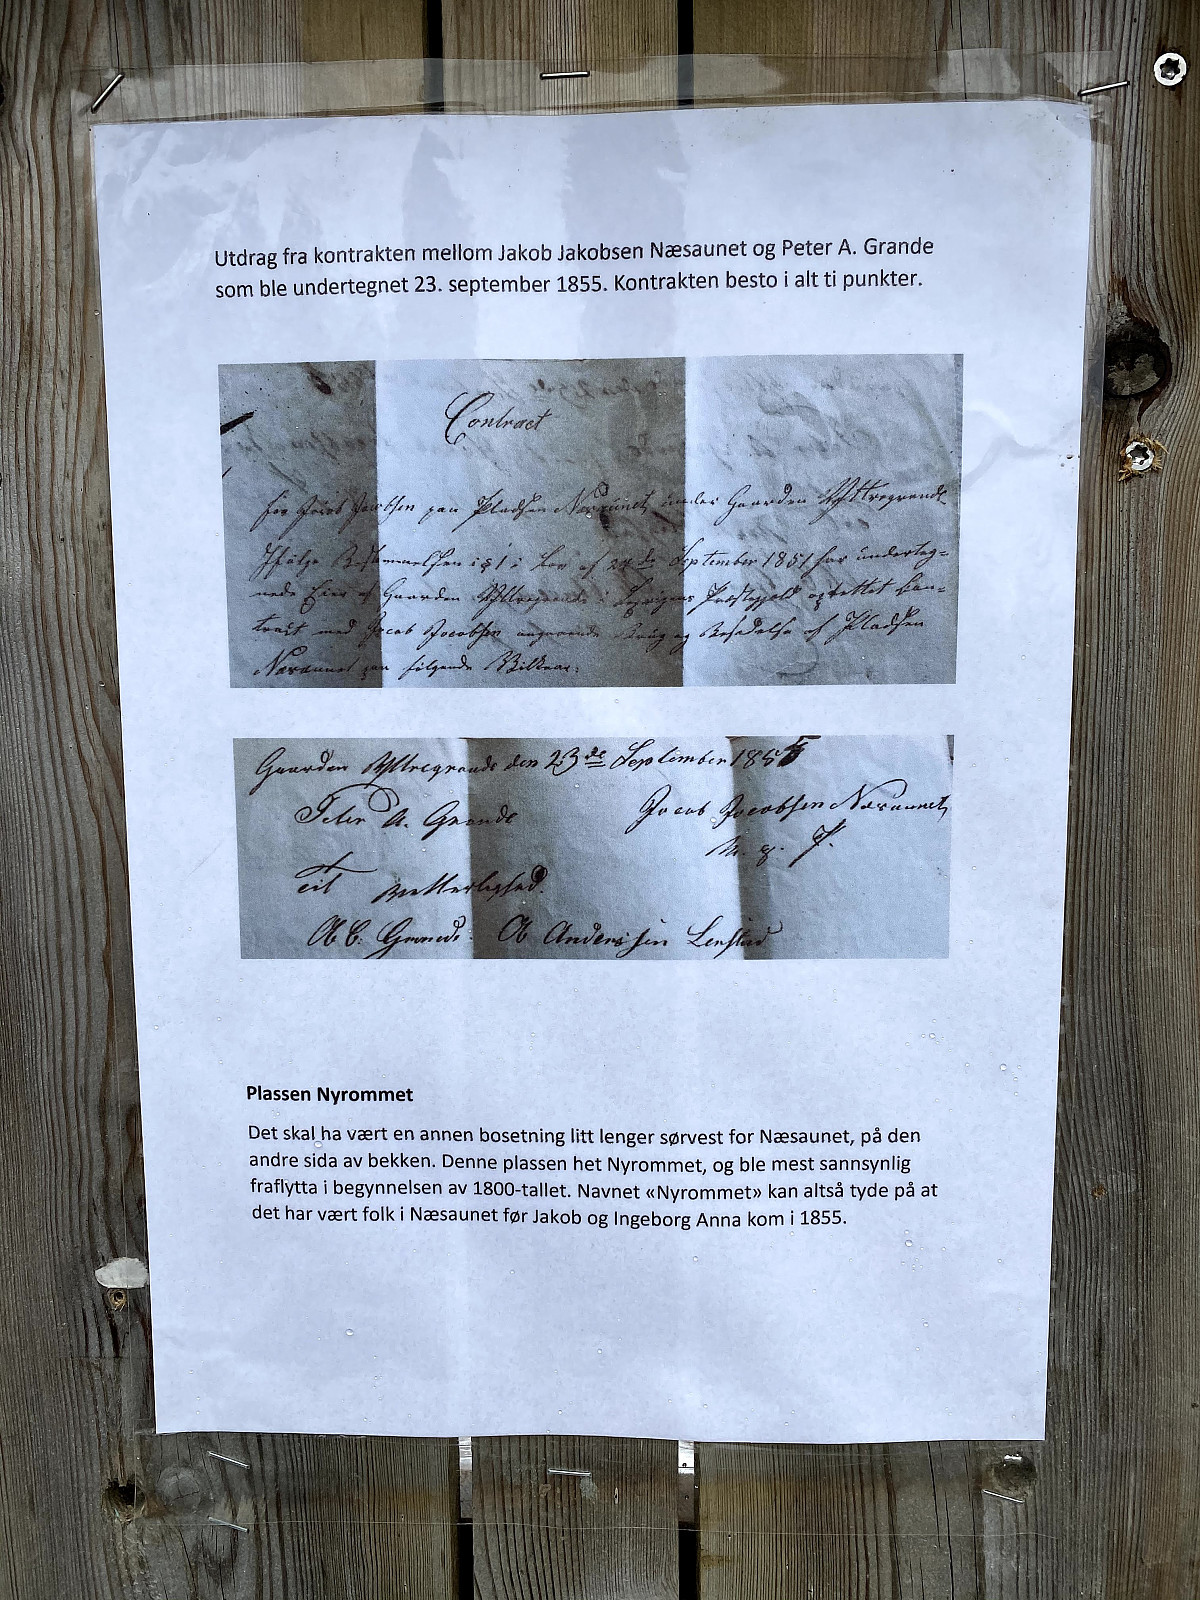 Utdrag fra kontrakten mellom Jakob Jakobsen Næsaunet og Peter A. Grande
som ble undertegnet 23. september 1855. Kontrakten besto i alt ti punkter.
Contract
for Jacob Jacobsen paa Pladsen Næsaunet under Gaarden Yttregrande
Ifølge Bestemmelsen i § 1 i Lov af 24de September 1851 har underteg-
nede Eier af Gaarden Yttregrande i Præstegjeld oprettet kon-
tract med Jacob Jacobsen angaaende Brug og Besiddelse af Pladsen
Næsaunet paa følgende Vilkaar:
Gaarden Yttregrande den 23de September 1855
Peter A. Grande Jacob Jacobsen Næsaunet
m. p. P.
Til Vitterlighed.
Grande Anderssen
Plassen Nyrommet
Det skal ha vært en annen bosetning litt lenger sørvest for Næsaunet, på den
andre sida av bekken. Denne plassen het Nyrommet, og ble mest sannsynlig
fraflytta i begynnelsen av 1800-tallet. Navnet «Nyrommet» kan altså tyde på at
det har vært folk i Næsaunet før Jakob og Ingeborg Anna kom i 1855.